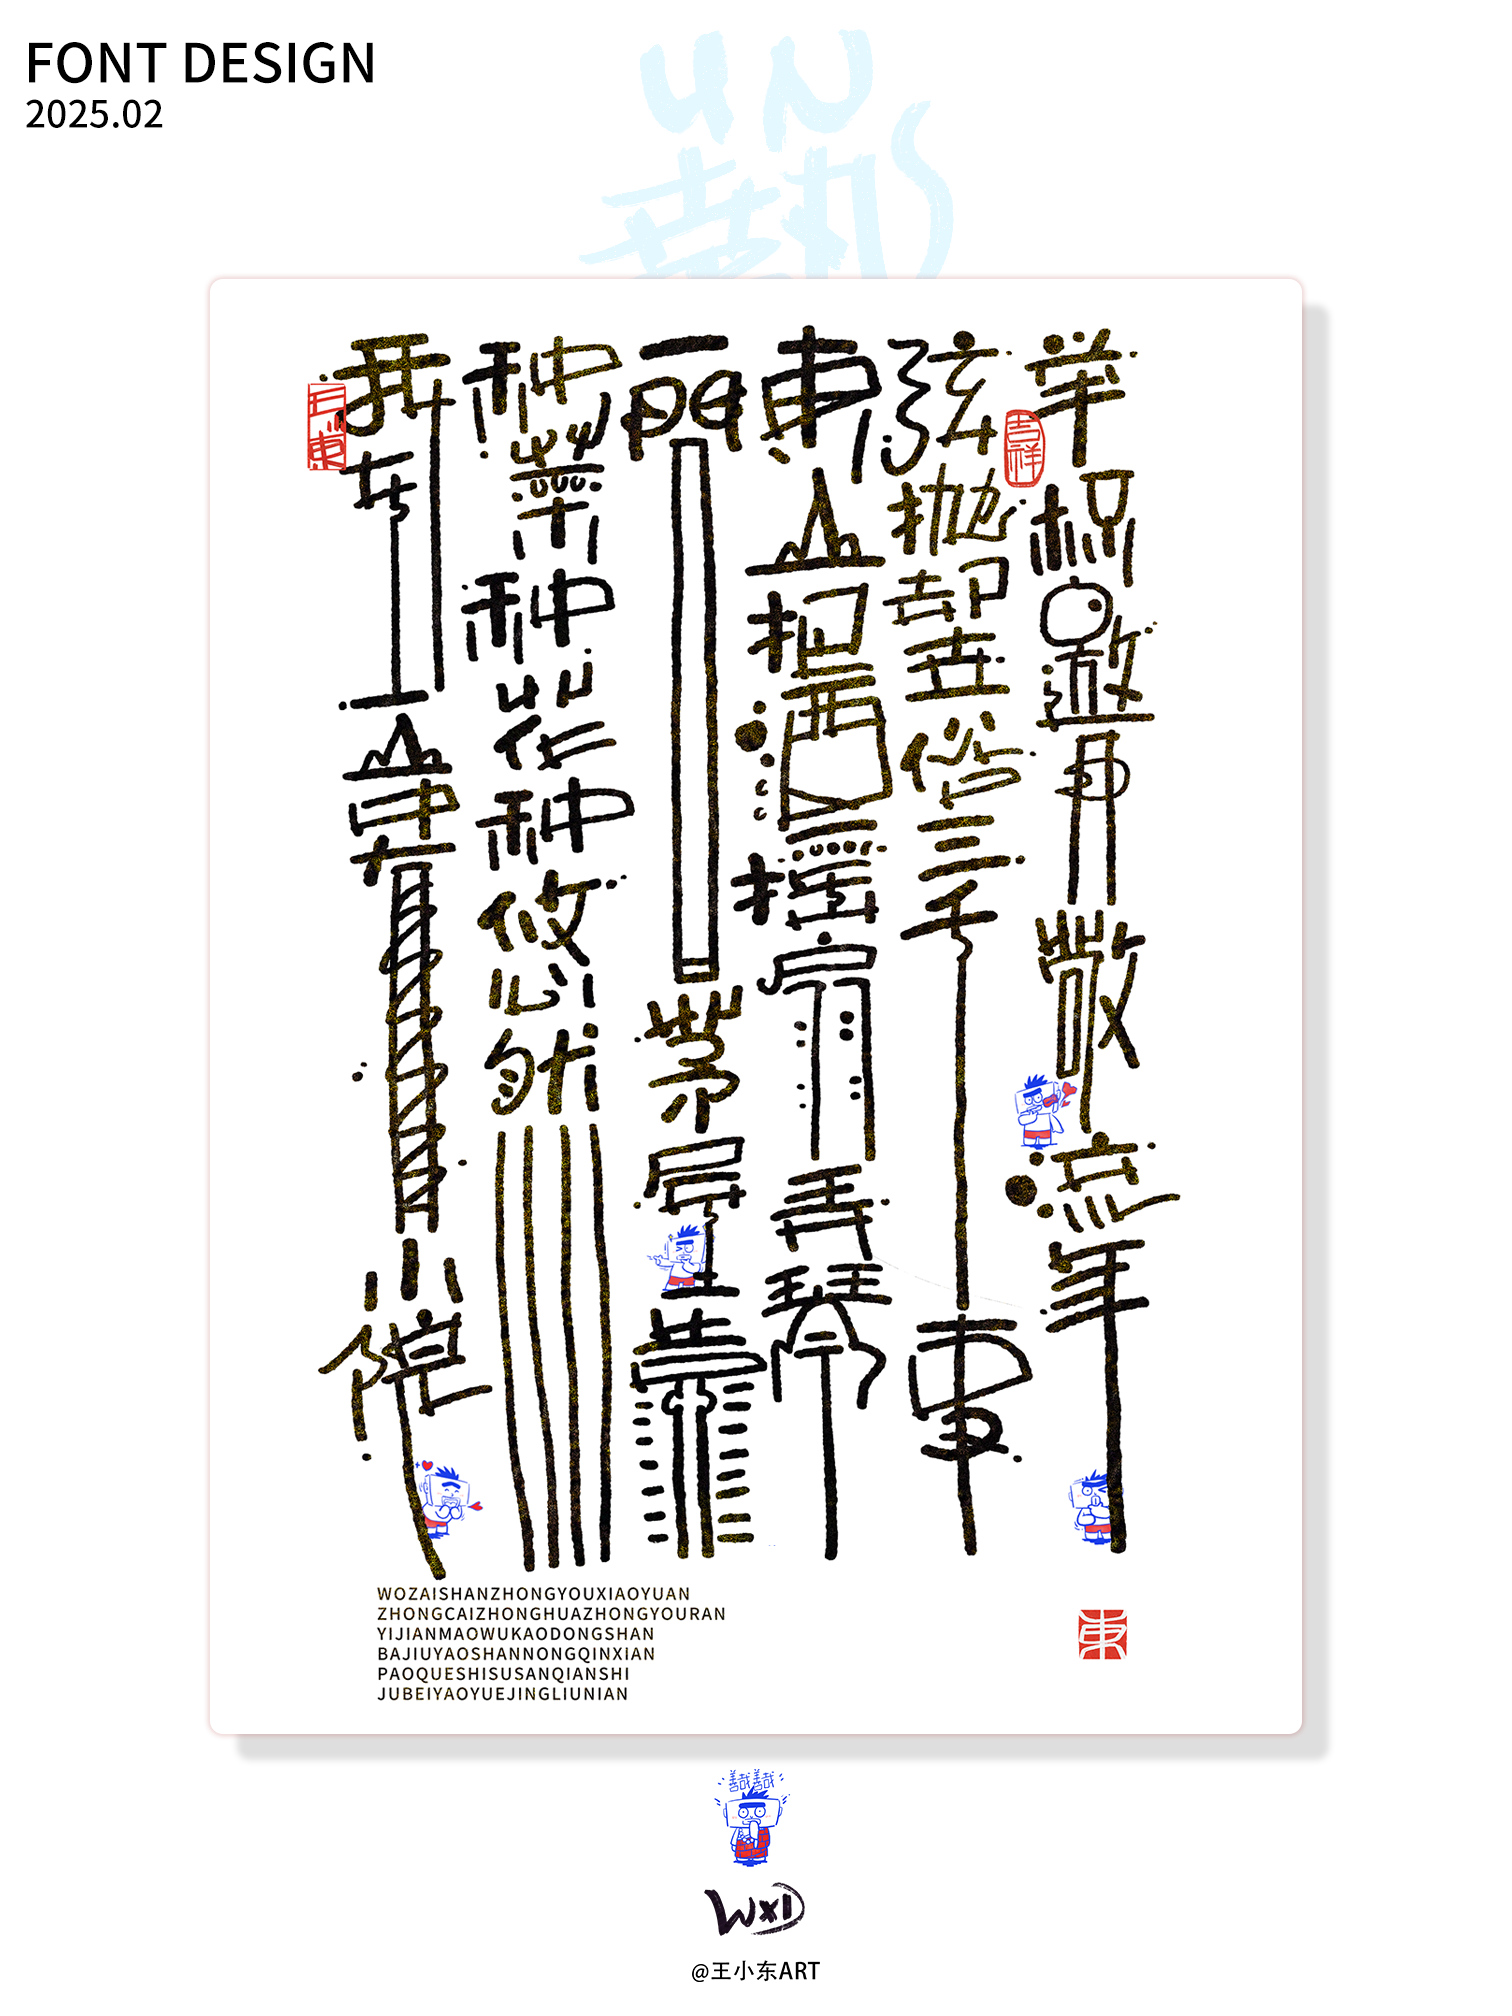 FONT DESIGN
2025.02
我在山中有小院
种菜种花种悠然
一間茅屋靠
東山把酒摇扇弄琴
弦抛却世俗三千事
举杯邀月敬流年
吉祥
WOZAISHANZHONGYOUXIAOYUAN
ZHONGCAIZHONGHUAZHONGYOURAN
YIJIANMAOWUKAODONGSHAN
BAJIUYAOSHANNONGQINXIAN
PAOQUESHISUSANQIANSHI
JUBEIYAOYUEJINGLIUNIAN
東
善哉善哉
WXD
@王小东ART